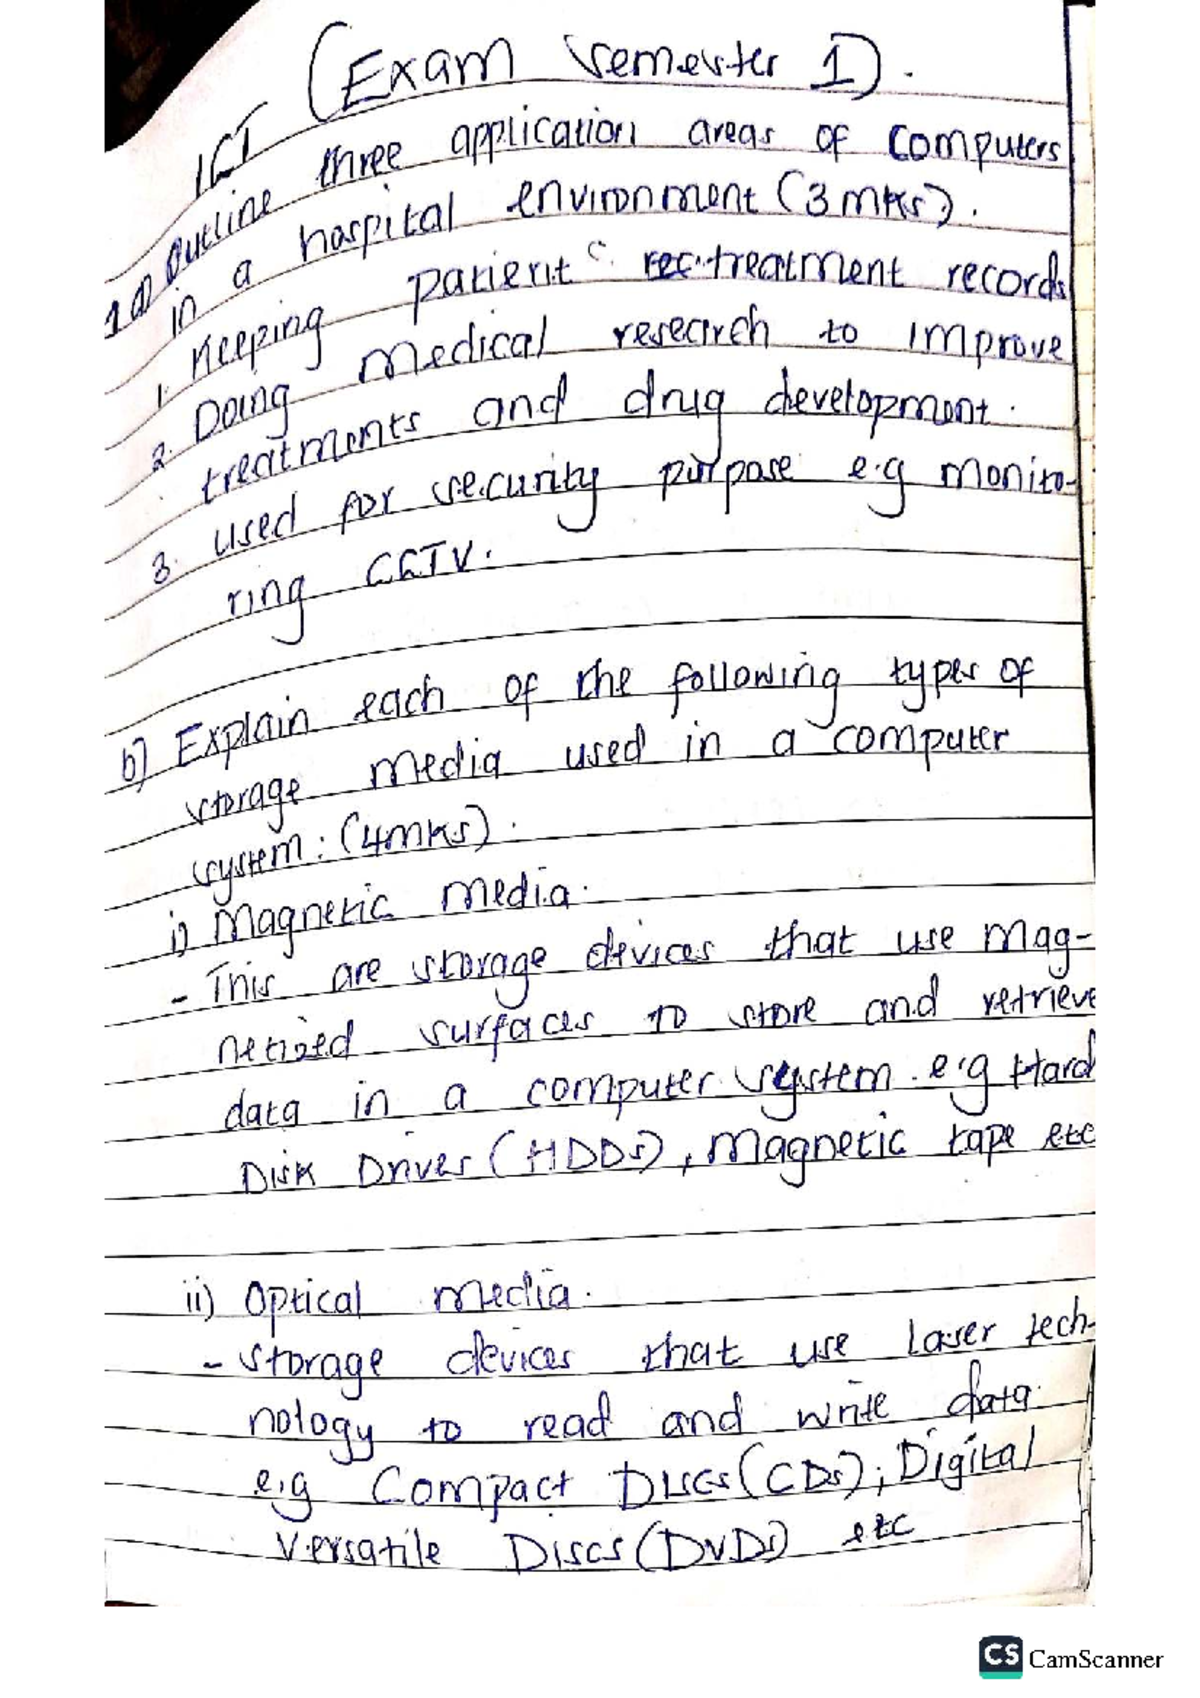 (Exam Semester 1).
ICT
1a) Outline three application areas of computers
in a hospital environment (3 mks).
1. Keeping patient treatment records
2. Doing medical research to improve
treatments and drug development.
3. used for security purpose e.g monito-
ring CCTV.
b) Explain each of the following types of
storage media used in a computer
system: (4mks).
i) Magnetic media.
- This are storage devices that use mag-
netized surfaces to store and retrieve
data in a computer system. e.g Hard
Disk Drives (HDDs), Magnetic tape etc
ii) Optical media.
- Storage devices that use laser tech-
nology to read and write data.
e.g Compact Discs (CDs), Digital
Versatile Discs (DVDs) etc
CS CamScanner